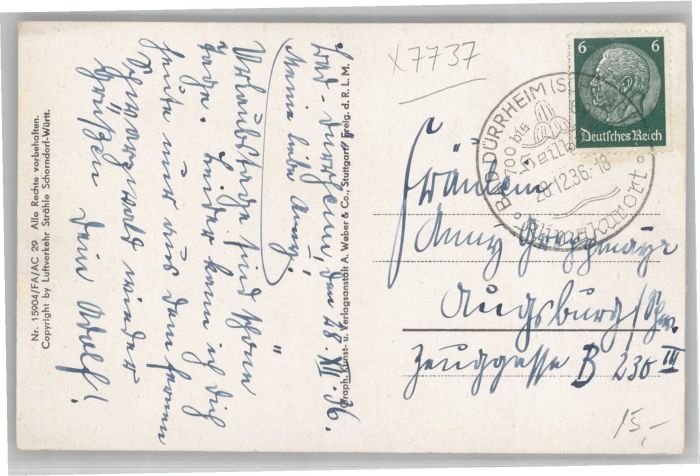 Bad-Dürrheim, den 28. XII. 36.
Meine liebe Anny!
Urlaubstage sind schöne
Tage. Leider kann ich dich
heute nur aus dem fernen
Schwarzwald wieder
grüßen Dein Adolf!
Nr. 15904/FA/AC 29 Alle Rechte vorbehalten.
Copyright by Luftverkehr Strähle Schorndorf-Württ.
Graph. Kunst- u. Verlagsanstalt A. Weber & Co., Stuttgart Freig. d. R. L. M.
X7737
6 6
Deutsches Reich
BAD DÜRRHEIM
700 bis
28.12.36.-18
Klimakurort
Fräulein
Anny
Augsburg/Schw.
Zeuggasse B 230 III
15,-